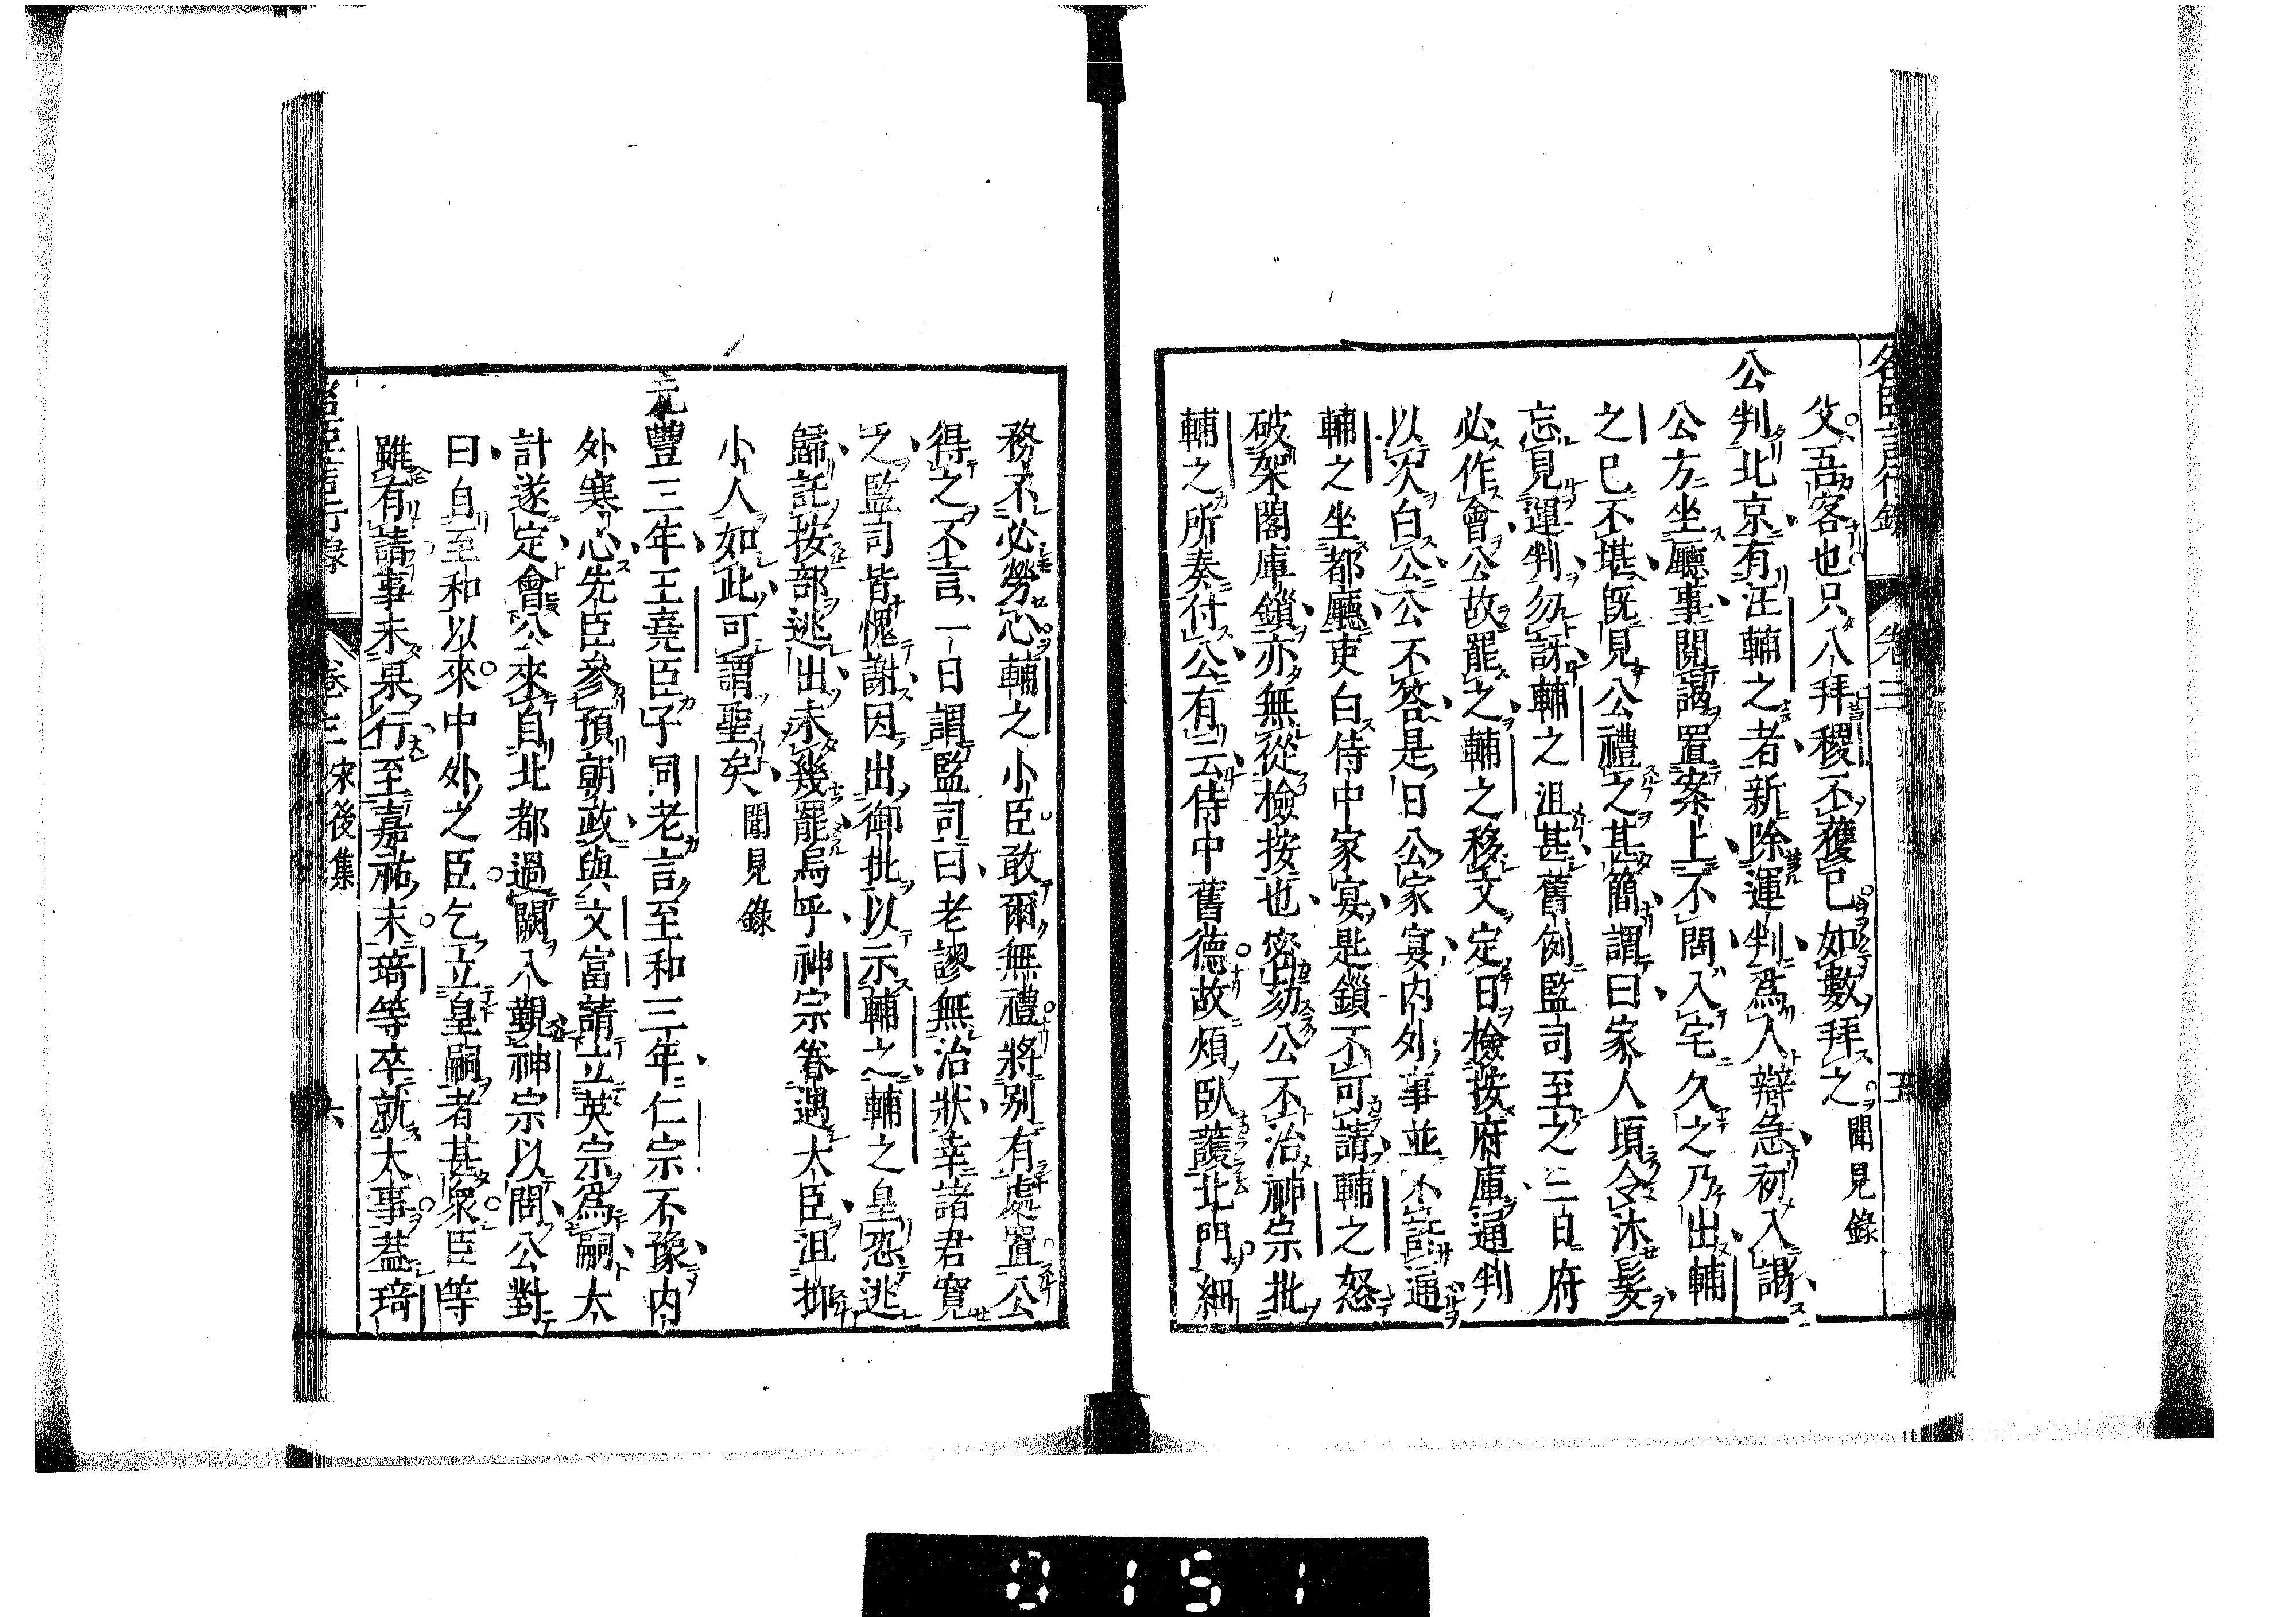 名臣言行錄 卷三 五
父吾客也只八拜稷不獲已如數拜之 聞見錄
公判北京有汪輔之者新除運判爲人辯急初入謁
公方坐廳事閱謁置案上不問入宅久之乃出輔
之已不堪既見公禮之甚簡謂曰家人頃令沐髮
忘見運判勿訝輔之沮甚舊例監司至之三日府
必作會公故罷之輔之移文定日檢按府庫通判
以次白公公不答是日公家宴内外事並不許通
輔之坐都廳吏白侍中家宴匙鎖不可請輔之怒
破架閣庫鎖亦無從檢按也密劾公不治神宗批
輔之所奏付公有云侍中舊德故煩臥護北門細
務不必勞心輔之小臣敢爾無禮將別有處置公
得之不言一日謂監司曰老謬無治狀幸諸君寬
之監司皆愧謝因出御批以示輔之輔之皇恐逃
歸託按部逃出未幾罷烏乎神宗眷遇大臣沮抑
小人如此可謂聖矣 聞見錄
元豐三年王堯臣子同老言至和三年仁宗不豫内
外寒心先臣參預朝政與文富請立英宗爲嗣大
計遂定會公來自北都過闕入覲神宗以問公對
曰自至和以來中外之臣乞立皇嗣者甚衆臣等
雖有請事未果行至嘉祐末琦等卒就大事蓋琦
名臣言行錄 卷三 宋後集 六
0151